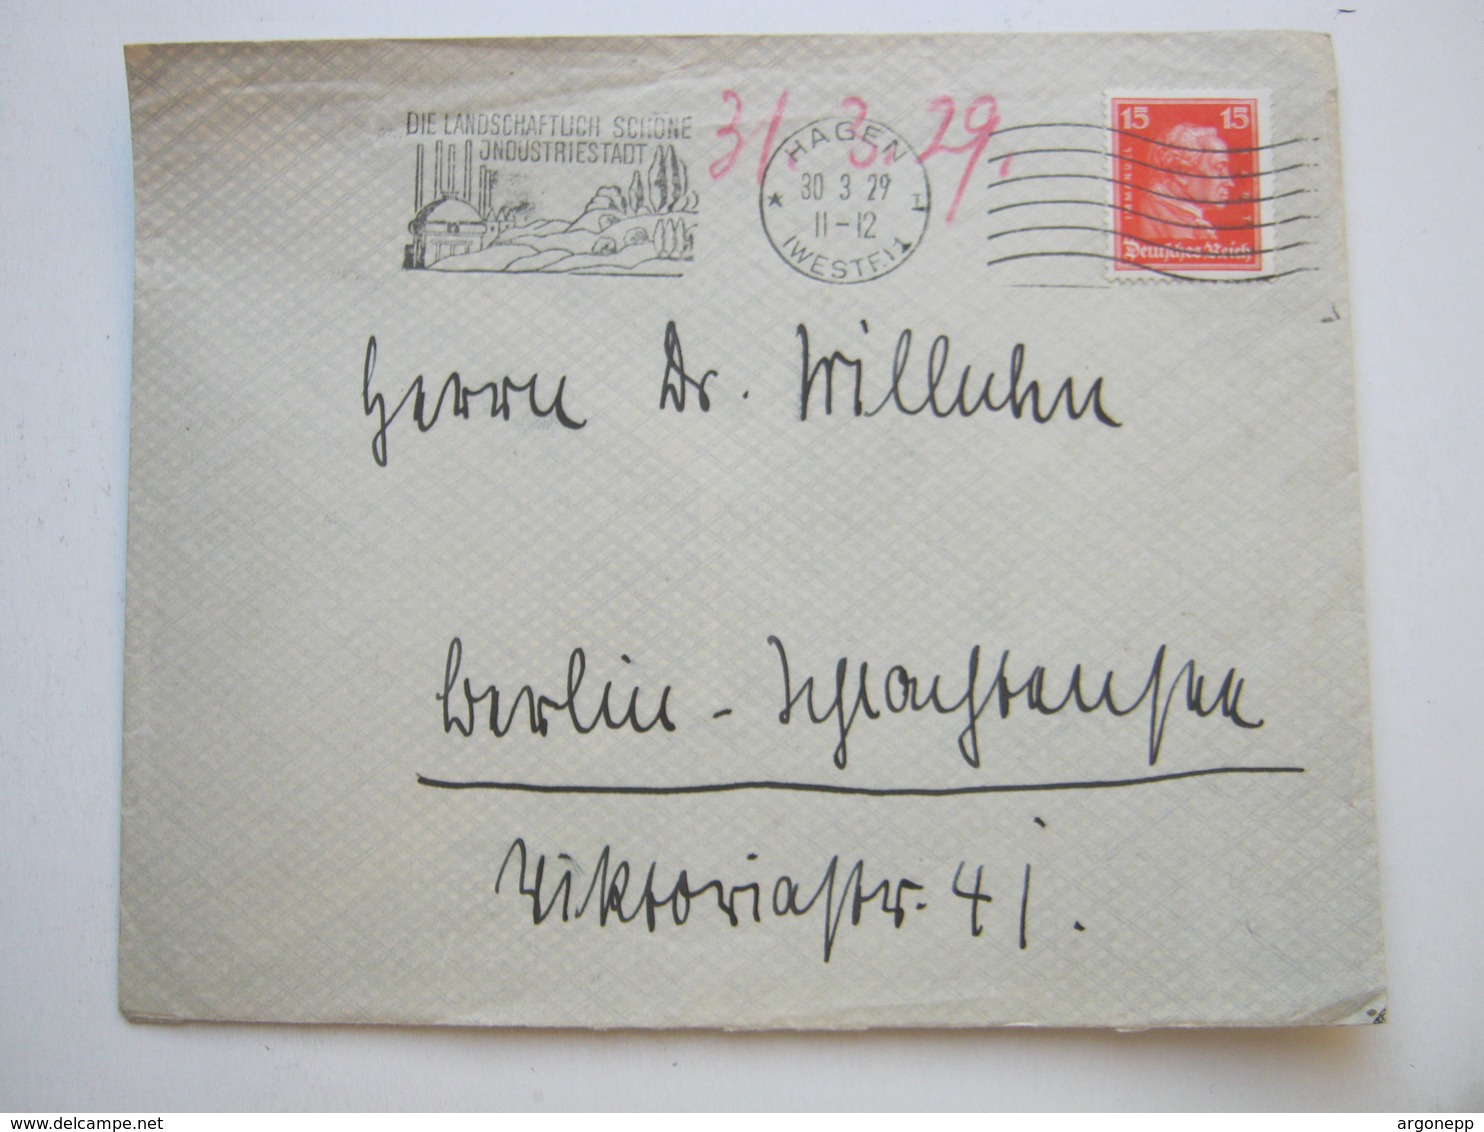 DIE LANDSCHAFTLICH SCHÖNE
JNDUSTRIESTADT
31. 3. 29.
HAGEN
30 3 29
11-12
(WESTF.) 1
15 15
IMMANUEL
Deutsches Reich
Herrn Dr. Willuhn
Berlin - Schlachtensee
Viktoriastr. 41.
argonepp